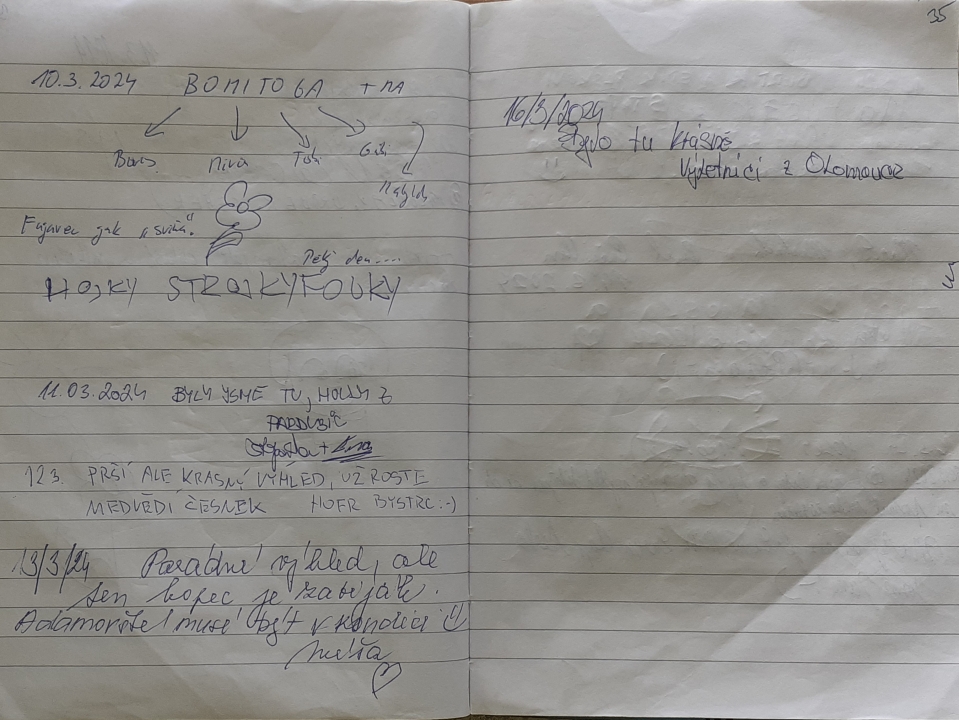 10.3.2024 BONITOGA + NA
Boris Niva Tobi Gabi
Fujavec jak „sviňa“
Pěkný den....
HOJKY STROJKY FOUKY
11.03.2024 BYLY JSME TU, HOLKY Z
PARDUBIC
12.3. PRŠÍ ALE KRÁSNÝ VÝHLED, UŽ ROSTE
MEDVĚDÍ ČESNEK HOFR BYSTRC :-)
13/3/24 Parádní výhled, ale
ten kopec je zabiják.
Adamovští musí být v kondici
35
16/3/2024
Bylo tu krásně
Výletníci z Olomouce